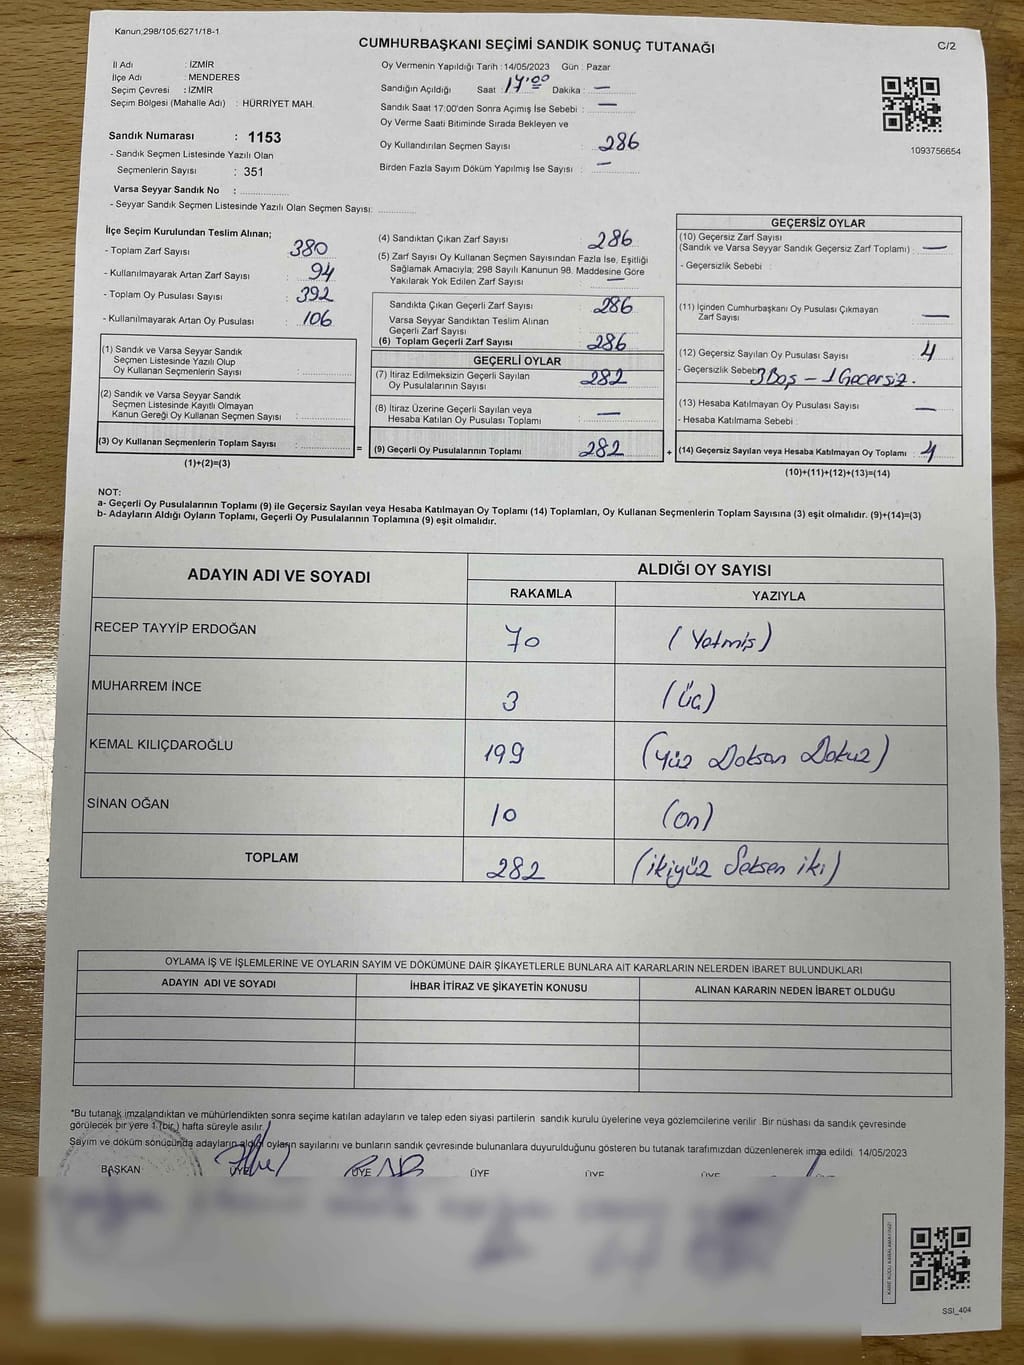 Kanun;298/105;6271/18-1
CUMHURBAŞKANI SEÇİMİ SANDIK SONUÇ TUTANAĞI
C/2
İl Adı : İZMİR
İlçe Adı : MENDERES
Seçim Çevresi : İZMİR
Seçim Bölgesi (Mahalle Adı) : HÜRRİYET MAH.
Sandık Numarası : 1153
- Sandık Seçmen Listesinde Yazılı Olan
Seçmenlerin Sayısı : 351
Varsa Seyyar Sandık No :
- Seyyar Sandık Seçmen Listesinde Yazılı Olan Seçmen Sayısı:
Oy Vermenin Yapıldığı Tarih : 14/05/2023 Gün : Pazar
Sandığın Açıldığı Saat : 17:00 Dakika : —
Sandık Saat 17:00'den Sonra Açımış İse Sebebi : —
Oy Verme Saati Bitiminde Sırada Bekleyen ve
Oy Kullandırılan Seçmen Sayısı : 286
Birden Fazla Sayım Döküm Yapılmış İse Sayısı : —
1093756654
İlçe Seçim Kurulundan Teslim Alınan;
- Toplam Zarf Sayısı : 380
- Kullanılmayarak Artan Zarf Sayısı : 94
- Toplam Oy Pusulası Sayısı : 392
- Kullanılmayarak Artan Oy Pusulası : 106
(1) Sandık ve Varsa Seyyar Sandık
Seçmen Listesinde Yazılı Olup
Oy Kullanan Seçmenlerin Sayısı :
(2) Sandık ve Varsa Seyyar Sandık
Seçmen Listesinde Kayıtlı Olmayan
Kanun Gereği Oy Kullanan Seçmen Sayısı :
(3) Oy Kullanan Seçmenlerin Toplam Sayısı : =
(1)+(2)=(3)
(4) Sandıktan Çıkan Zarf Sayısı : 286
(5) Zarf Sayısı Oy Kullanan Seçmen Sayısından Fazla İse, Eşitliği
Sağlamak Amacıyla; 298 Sayılı Kanunun 98. Maddesine Göre
Yakılarak Yok Edilen Zarf Sayısı : —
Sandıkta Çıkan Geçerli Zarf Sayısı : 286
Varsa Seyyar Sandıktan Teslim Alınan
Geçerli Zarf Sayısı :
(6) Toplam Geçerli Zarf Sayısı : 286
GEÇERLİ OYLAR
(7) İtiraz Edilmeksizin Geçerli Sayılan
Oy Pusulalarının Sayısı : 282
(8) İtiraz Üzerine Geçerli Sayılan veya
Hesaba Katılan Oy Pusulası Toplamı : —
(9) Geçerli Oy Pusulalarının Toplamı : 282 +
GEÇERSİZ OYLAR
(10) Geçersiz Zarf Sayısı
(Sandık ve Varsa Seyyar Sandık Geçersiz Zarf Toplamı) : —
- Geçersizlik Sebebi :
(11) İçinden Cumhurbaşkanı Oy Pusulası Çıkmayan
Zarf Sayısı : —
(12) Geçersiz Sayılan Oy Pusulası Sayısı : 4
- Geçersizlik Sebebi : 3 Boş - 1 Geçersiz.
(13) Hesaba Katılmayan Oy Pusulası Sayısı : —
- Hesaba Katılmama Sebebi :
(14) Geçersiz Sayılan veya Hesaba Katılmayan Oy Toplamı : 4
(10)+(11)+(12)+(13)=(14)
NOT:
a- Geçerli Oy Pusulalarının Toplamı (9) ile Geçersiz Sayılan veya Hesaba Katılmayan Oy Toplamı (14) Toplamları, Oy Kullanan Seçmenlerin Toplam Sayısına (3) eşit olmalıdır. (9)+(14)=(3)
b- Adayların Aldığı Oyların Toplamı, Geçerli Oy Pusulalarının Toplamına (9) eşit olmalıdır.
ADAYIN ADI VE SOYADI
ALDIĞI OY SAYISI
RAKAMLA YAZIYLA
RECEP TAYYİP ERDOĞAN 70 (Yetmiş)
MUHARREM İNCE 3 (Üç)
KEMAL KILIÇDAROĞLU 199 (Yüz Doksan Dokuz)
SİNAN OĞAN 10 (On)
TOPLAM 282 (ikiyüz Seksen iki)
OYLAMA İŞ VE İŞLEMLERİNE VE OYLARIN SAYIM VE DÖKÜMÜNE DAİR ŞİKAYETLERLE BUNLARA AİT KARARLARIN NELERDEN İBARET BULUNDUKLARI
ADAYIN ADI VE SOYADI İHBAR İTİRAZ VE ŞİKAYETİN KONUSU ALINAN KARARIN NEDEN İBARET OLDUĞU
*Bu tutanak imzalandıktan ve mühürlendikten sonra seçime katılan adayların ve talep eden siyasi partilerin sandık kurulu üyelerine veya gözlemcilerine verilir. Bir nüshası da sandık çevresinde
görülecek bir yere 1 (bir) hafta süreyle asılır.
Sayım ve döküm sonucunda adayların aldığı oyların sayılarını ve bunların sandık çevresinde bulunanlara duyurulduğunu gösteren bu tutanak tarafımızdan düzenlenerek imza edildi. 14/05/2023
BAŞKAN ÜYE ÜYE ÜYE ÜYE ÜYE ÜYE
SSI_404